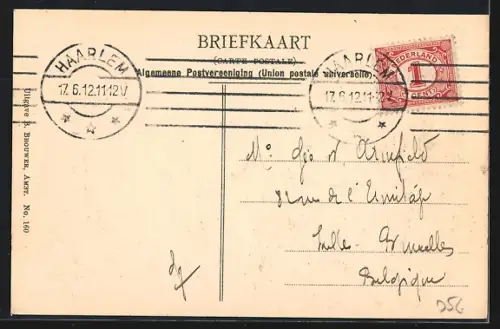 BRIEFKAART
(CARTE POSTALE)
Algemeene Postvereeniging (Union postale universelle)
HAARLEM
17.6.12.11-12V
HAARLEM
17.6.12.11-12V
NEDERLAND
1
CENT
Mr. Geo d'
rue de l'Ermitage
Bruxelles
Belgique
Uitgave N. Brouwer, Amst. No. 160